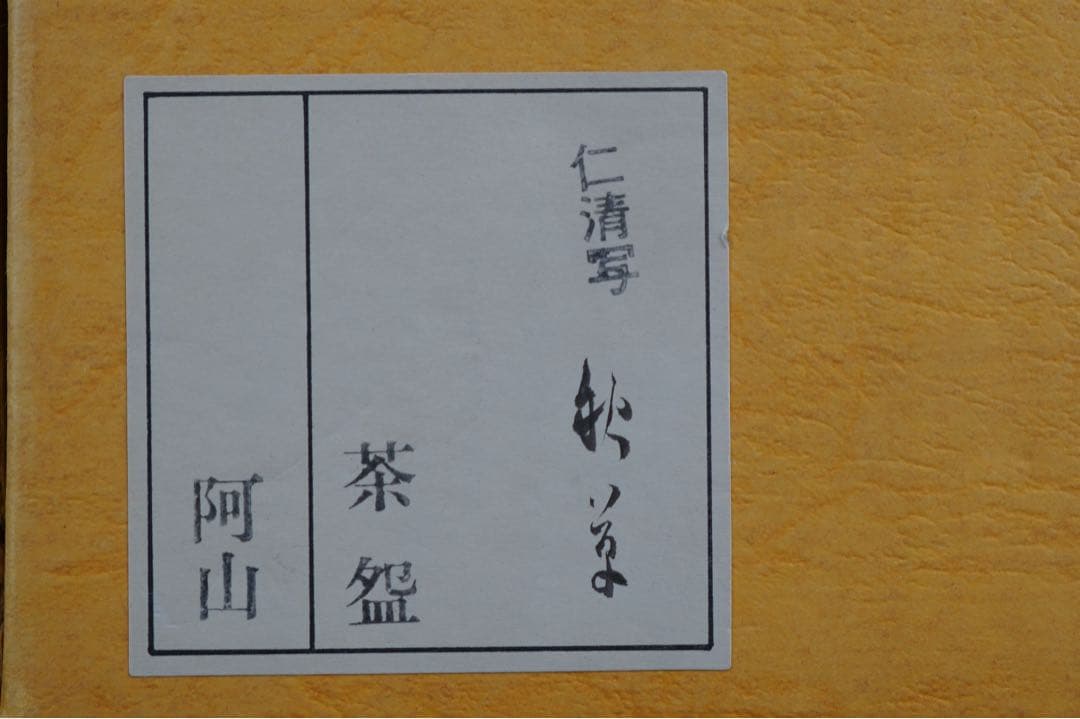 仁清写 秋草
茶盌
阿山